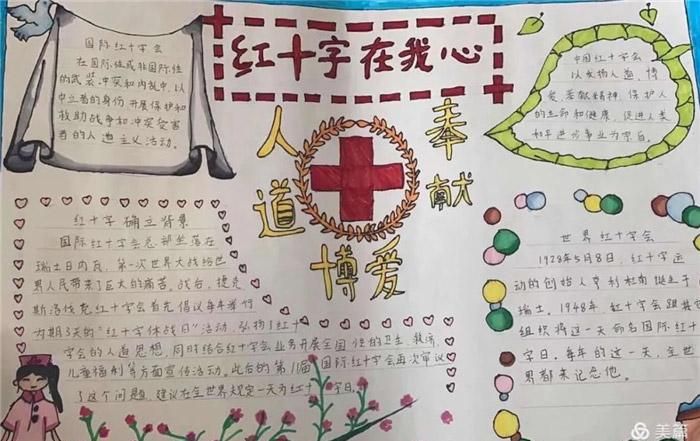 红十字在我心
国际红十字会
在国际性或非国际性
的武装冲突和内乱中,以
中立者的身份开展保护和
救助战争和冲突受害
者的人道主义活动。
中国红十字会
以发扬人道、博
爱、奉献精神,保护人
的生命和健康,促进人类
和平进步事业为宗旨。
人道
奉献
博爱
红十字确立背景
国际红十字会总部坐落在
瑞士日内瓦,第一次世界大战给世
界人民带来了巨大的痛苦。战后,捷克
斯洛伐克红十字会首先倡议每年举行
为期3天的"红十字休战日"活动,弘扬了红十
字会的人道思想,同时结合红十字会业务开展全国性的卫生、救济、
儿童福利等方面宣传活动。此后的第11届国际红十字会再次审议
了这个问题,建议在全世界规定一天为红十字日。
世界红十字会
1928年5月8日,红十字运
动的创始人亨利杜南诞生于
瑞士。1948年,红十字会跟其
组织将这一天命名国际红十
字日,每年的这一天,全世
界都来记念他。
美篇